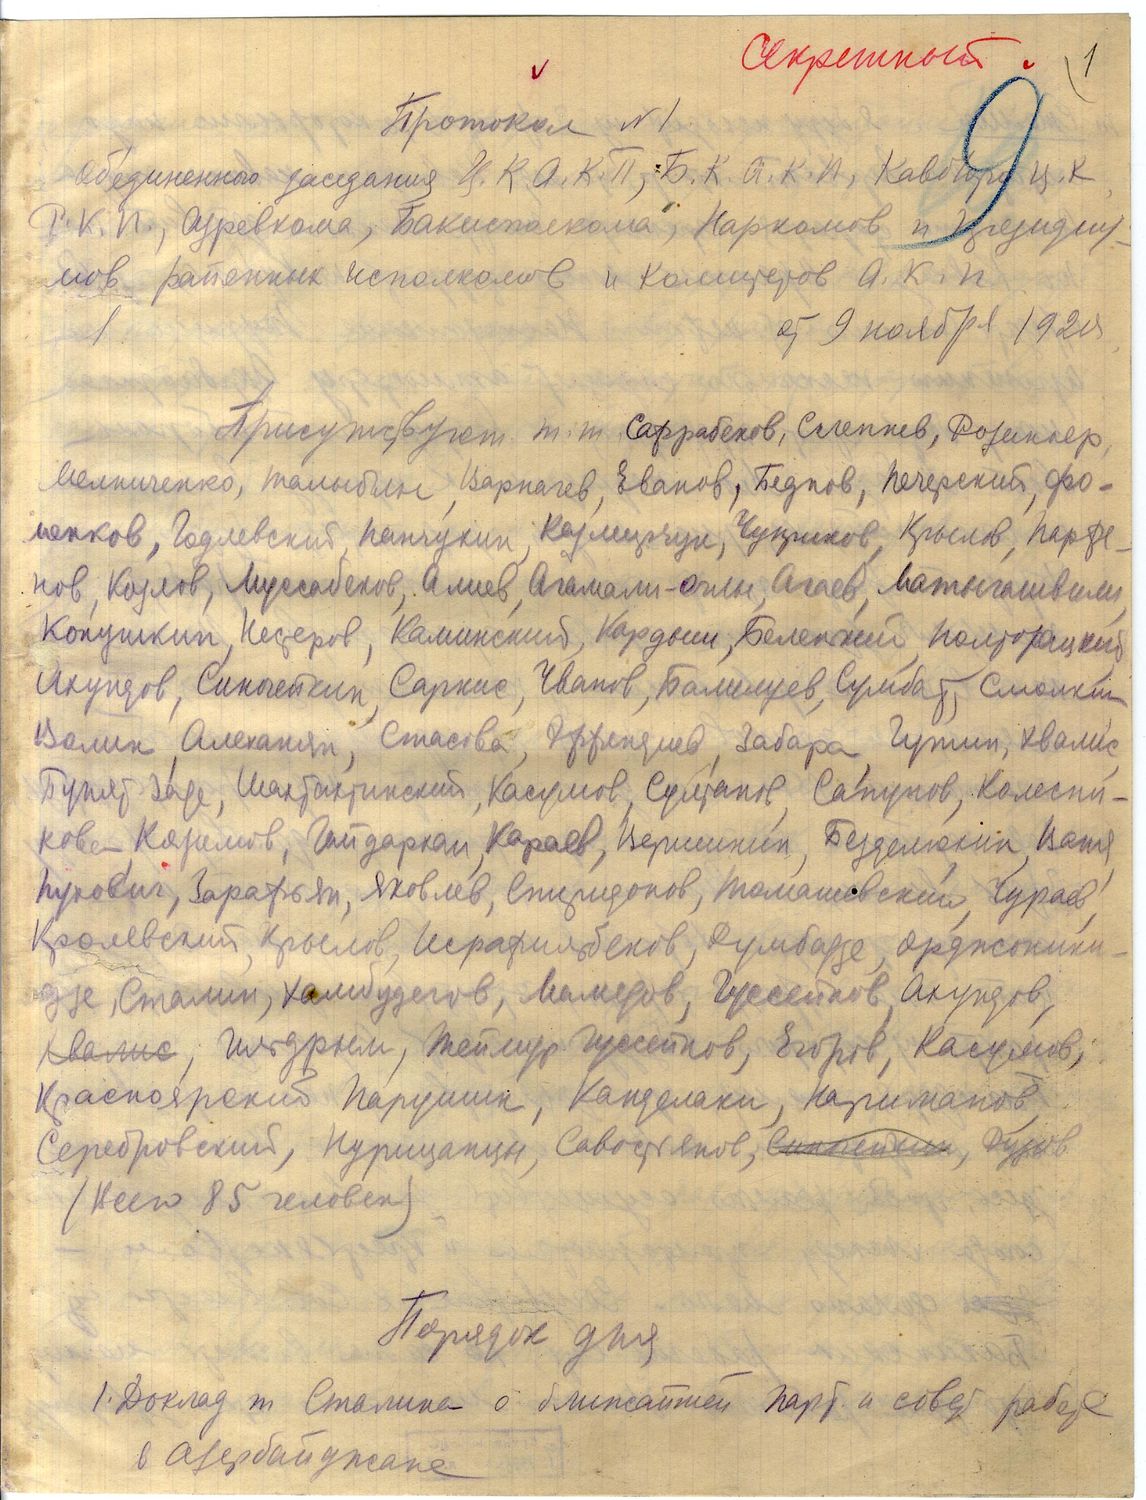 Секретный.
1
9
Протокол N 1
Объединенного заседания Ц.К.А.К.П., Б.К.А.К.П., Кавбюро Ц.К.
Р.К.П., Азревкома, Бакисполкома, Наркомов и президиу-
мов районных исполкомов и комитетов А.К.П.
от 9 ноября 1920
Присутствуют т.т. Саррабеков, Слепнев, Розенкер,
Мельниченко, Талыблы, Варначев, Еванов, Бедпов, Печерский, Фо-
менков, Годлевский, Панчулин, Чуприков, Крылов, Парфе-
нов, Козлов, Муссабеков, Алиев, Агамали-Оглы, Агаев,
Конушкин, Нестеров, Каминский, Кардаш, Беленький, Полторацкий
Ахундов, Синочеткин, Саркис, Иванов, Сумбат, Смолкин
Волин, Алеканян, Стасова, Эффендиев, Забара, Гутин, Хвалис,
Буният Заде, Шахтахтинский, Касумов, Султанов, Сапунов, Колесни-
кова, Казимов, Караев, Вершинин, Безделюкин, Ваня
Зарафьян, Яковлев, Спиридонов, Томашевский, Чураев,
Кролевский, Крылов, Исрафильбеков, Думбадзе, Орджоники-
дзе, Сталин, Хамбудегов, Мамедов, Гуссейнов, Ахундов,
Хвалис, Ильдрым, Теймур Гуссейнов, Егоров, Касумов,
Красноярский, Парушин, Канделаки, Нариманов,
Серебровский, Савостьянов, Синочеткин,
(Всего 85 человек)
Порядок дня
1. Доклад т Сталина о ближайшей парт. и совет работе
в Азербайджане